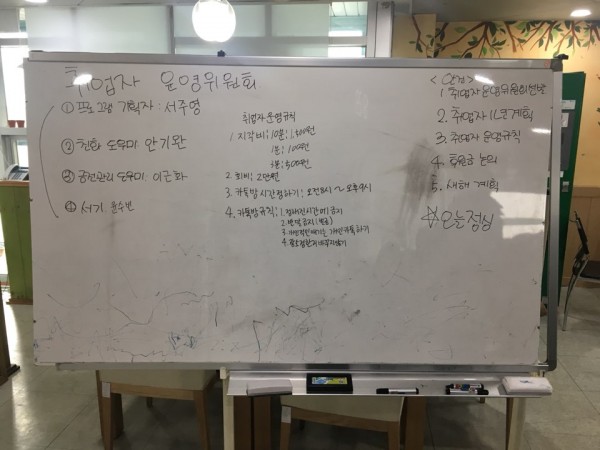 취업자 운영위원회
① 프로그램 기획자 : 서주영
② 전화 도우미 안기완
③ 금전관리 도우미 이근화
④ 서기 윤수빈
취업자 운영규칙
1. 지각비 ; 10분 ; 1,500원
1분 ; 100원
3분 ; 500원
2. 회비 ; 2만원
3. 카톡방 시간정하기 ; 오전8시 ~ 오후9시
4. 카톡방규칙 ; 1. 정해진시간에 금지
2. 반복금지 (벌금)
3. 개인적인얘기는 개인카톡하기
<안건>
1. 취업자운영위원회선발
2. 취업자 1년계획
3. 취업자 운영규칙
4. 논의
5. 새해 계획
☆오늘점심